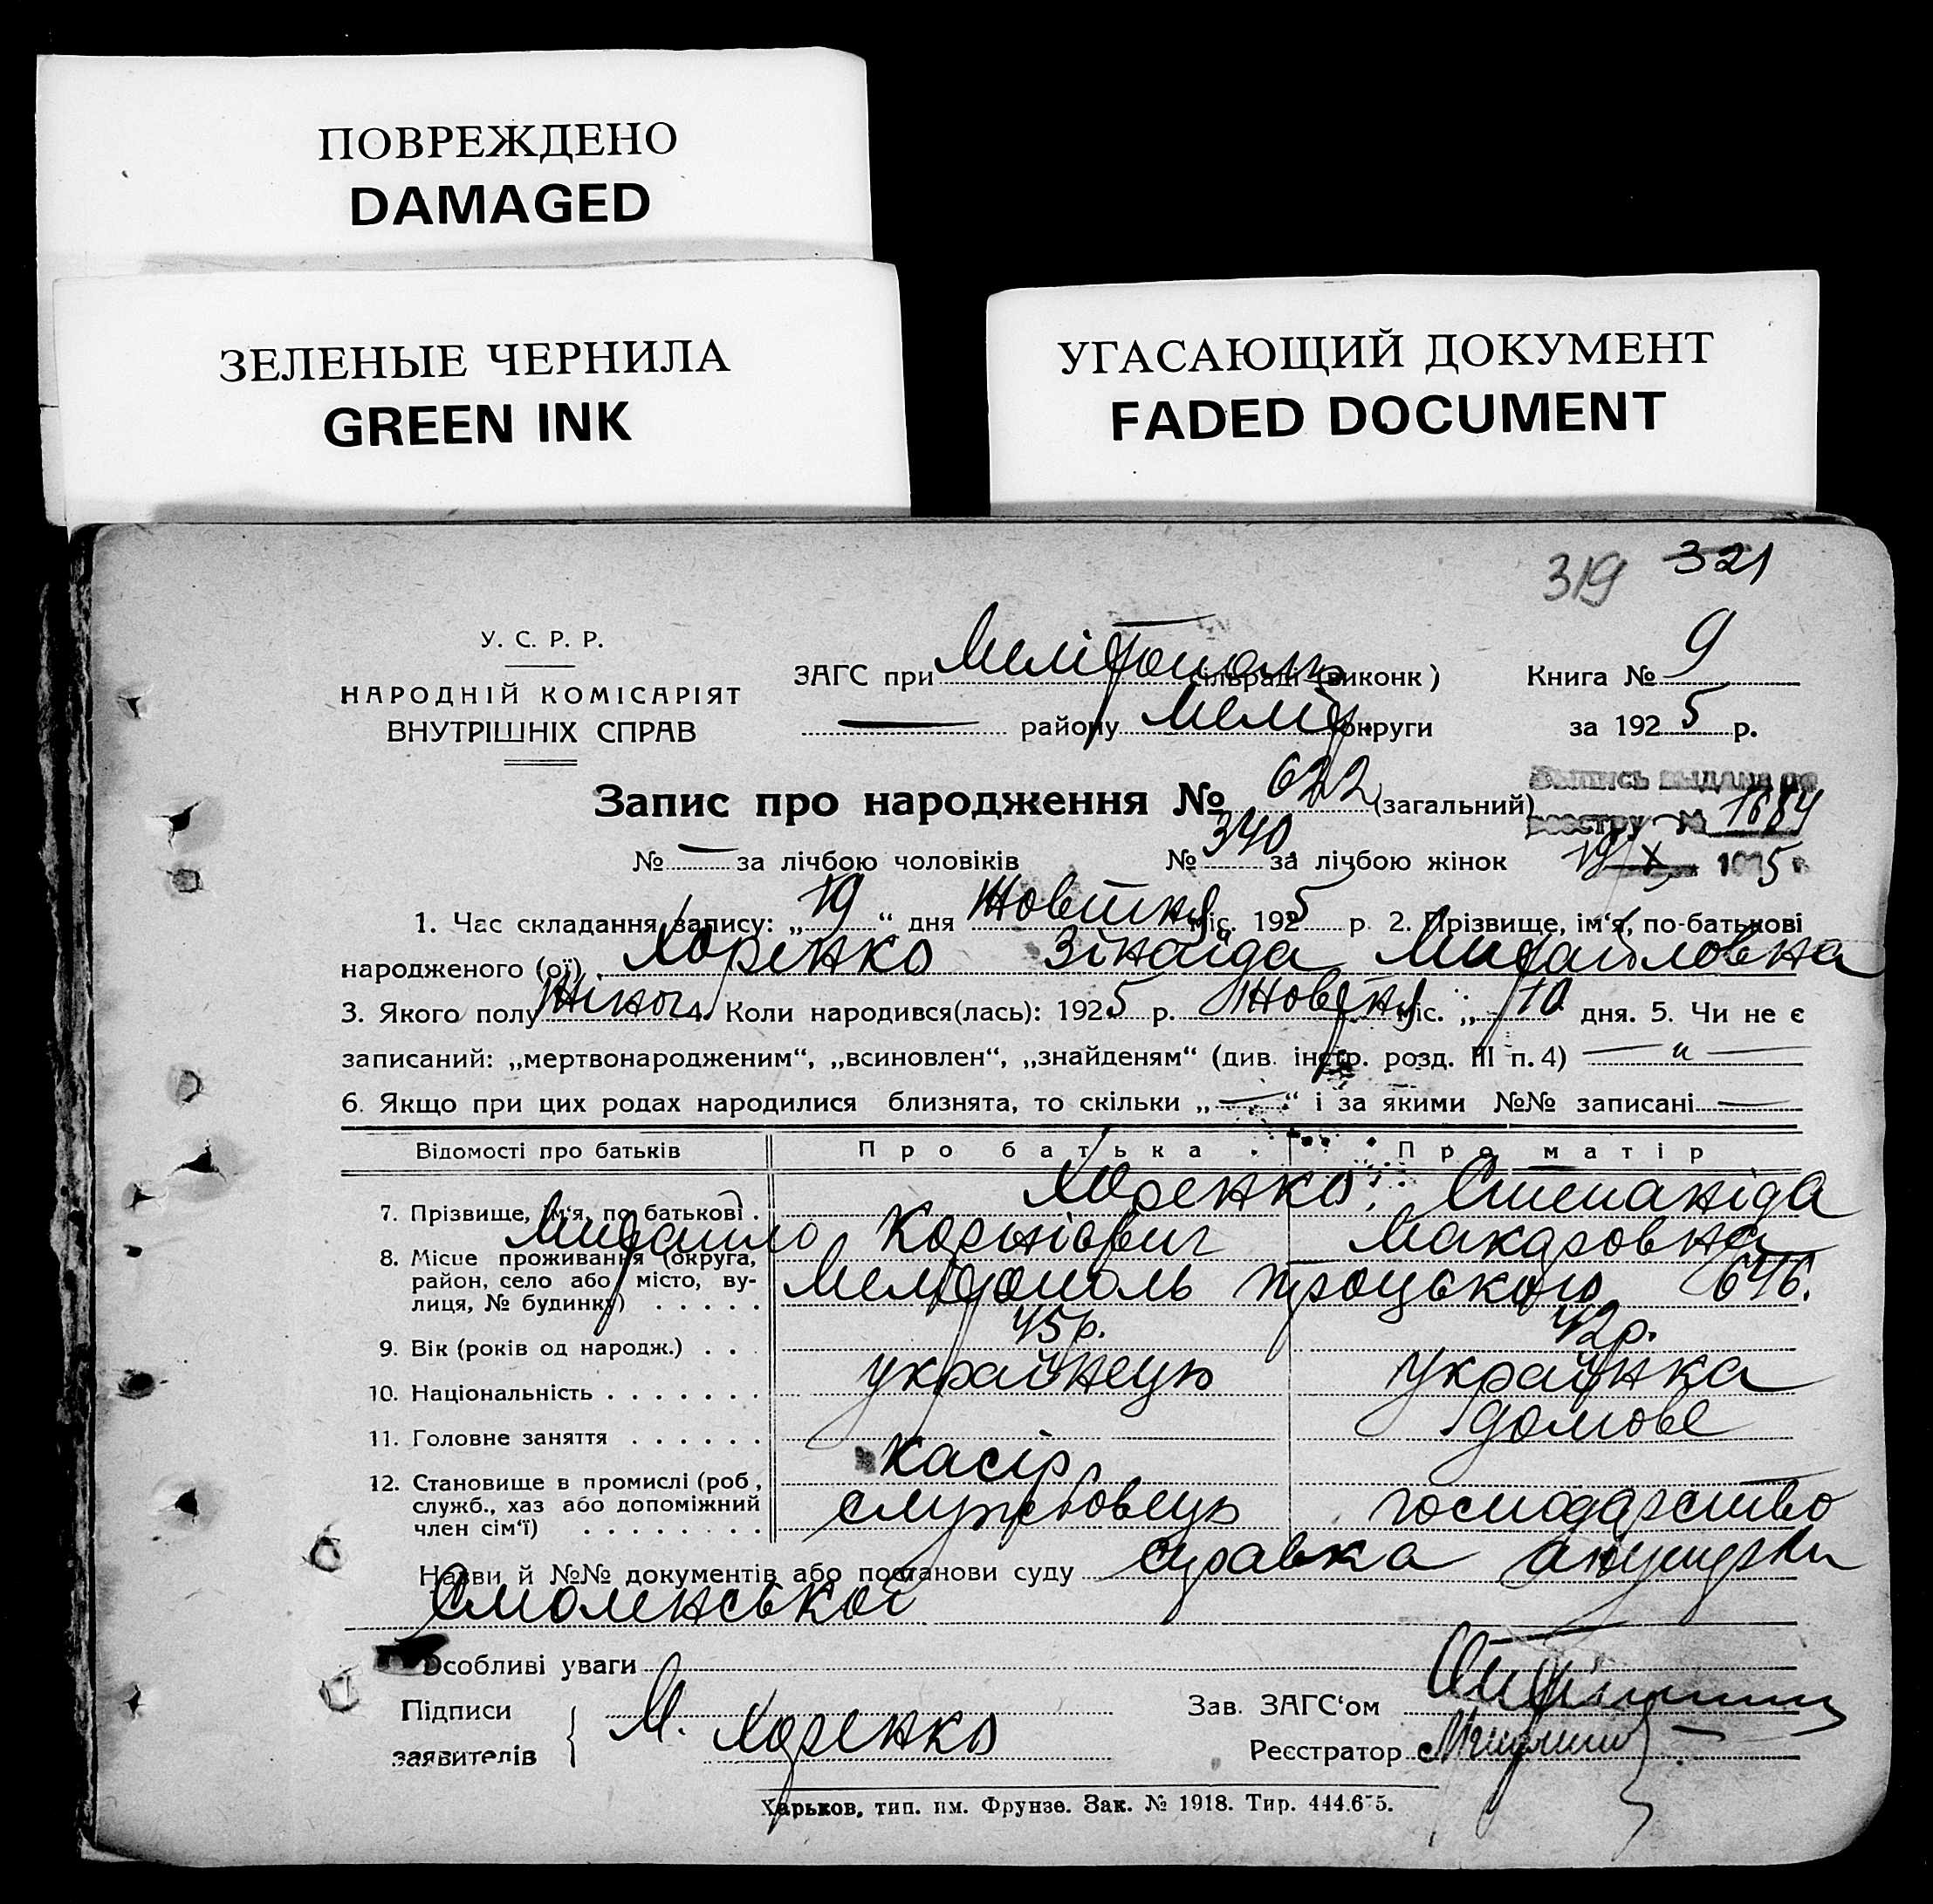 ПОВРЕЖДЕНО
DAMAGED
ЗЕЛЕНЫЕ ЧЕРНИЛА
GREEN INK
УГАСАЮЩИЙ ДОКУМЕНТ
FADED DOCUMENT
319 321
У. С. Р. Р.
НАРОДНІЙ КОМІСАРІЯТ
ВНУТРІШНІХ СПРАВ
ЗАГС при Мелітополь сільраді (виконк)
— району Меліт. округи
Книга № 9
за 1925 р.
Запис про народження № 622 (загальний)
Выпись выдана по
реестру № 1684
19/X 1925 г
№ — за лічбою чоловіків № 340 за лічбою жінок
1. Час складання запису: „19“ дня Жовтня міс. 1925 р. 2. Прізвище, ім‘я, по-батькові
народженого (ої) Хоренко Зінаїда Михайловна
3. Якого полу Жіноч. 4. Коли народився(лась): 1925 р. Жовтня міс. „10 дня. 5. Чи не є
записаний: „мертвонародженим“, „всиновлен“, „знайденям“ (див. інстр. розд. III п. 4) — „ —
6. Якщо при цих родах народилися близнята, то скільки „—“ і за якими №№ записані —
Відомості про батьків Про батька Про матір
7. Прізвище, ім‘я, по батькові . Хоренко, Степаніда
Михайло Корнієвич Макаровна
8. Місце проживання (округа,
район, село або місто, ву-
лиця, № будинку) . . . . . Мелітополь Троцького 646.
9. Вік (років од народж.) . . . 45 р. 42 р.
10. Національність . . . . . . . українець українка
11. Головне заняття . . . . . . касір домове
12. Становище в промислі (роб.,
служб., хаз або допоміжний
член сім‘ї) . . . . . . . . службовець господарство
Назви й №№ документів або постанови суду справка акушерки
Смоленської
Особливі уваги
Підписи
заявителів { М. Хоренко
Зав. ЗАГС‘ом
Реєстратор
Харьков, тип. им. Фрунзе. Зак. № 1918. Тир. 444.675.